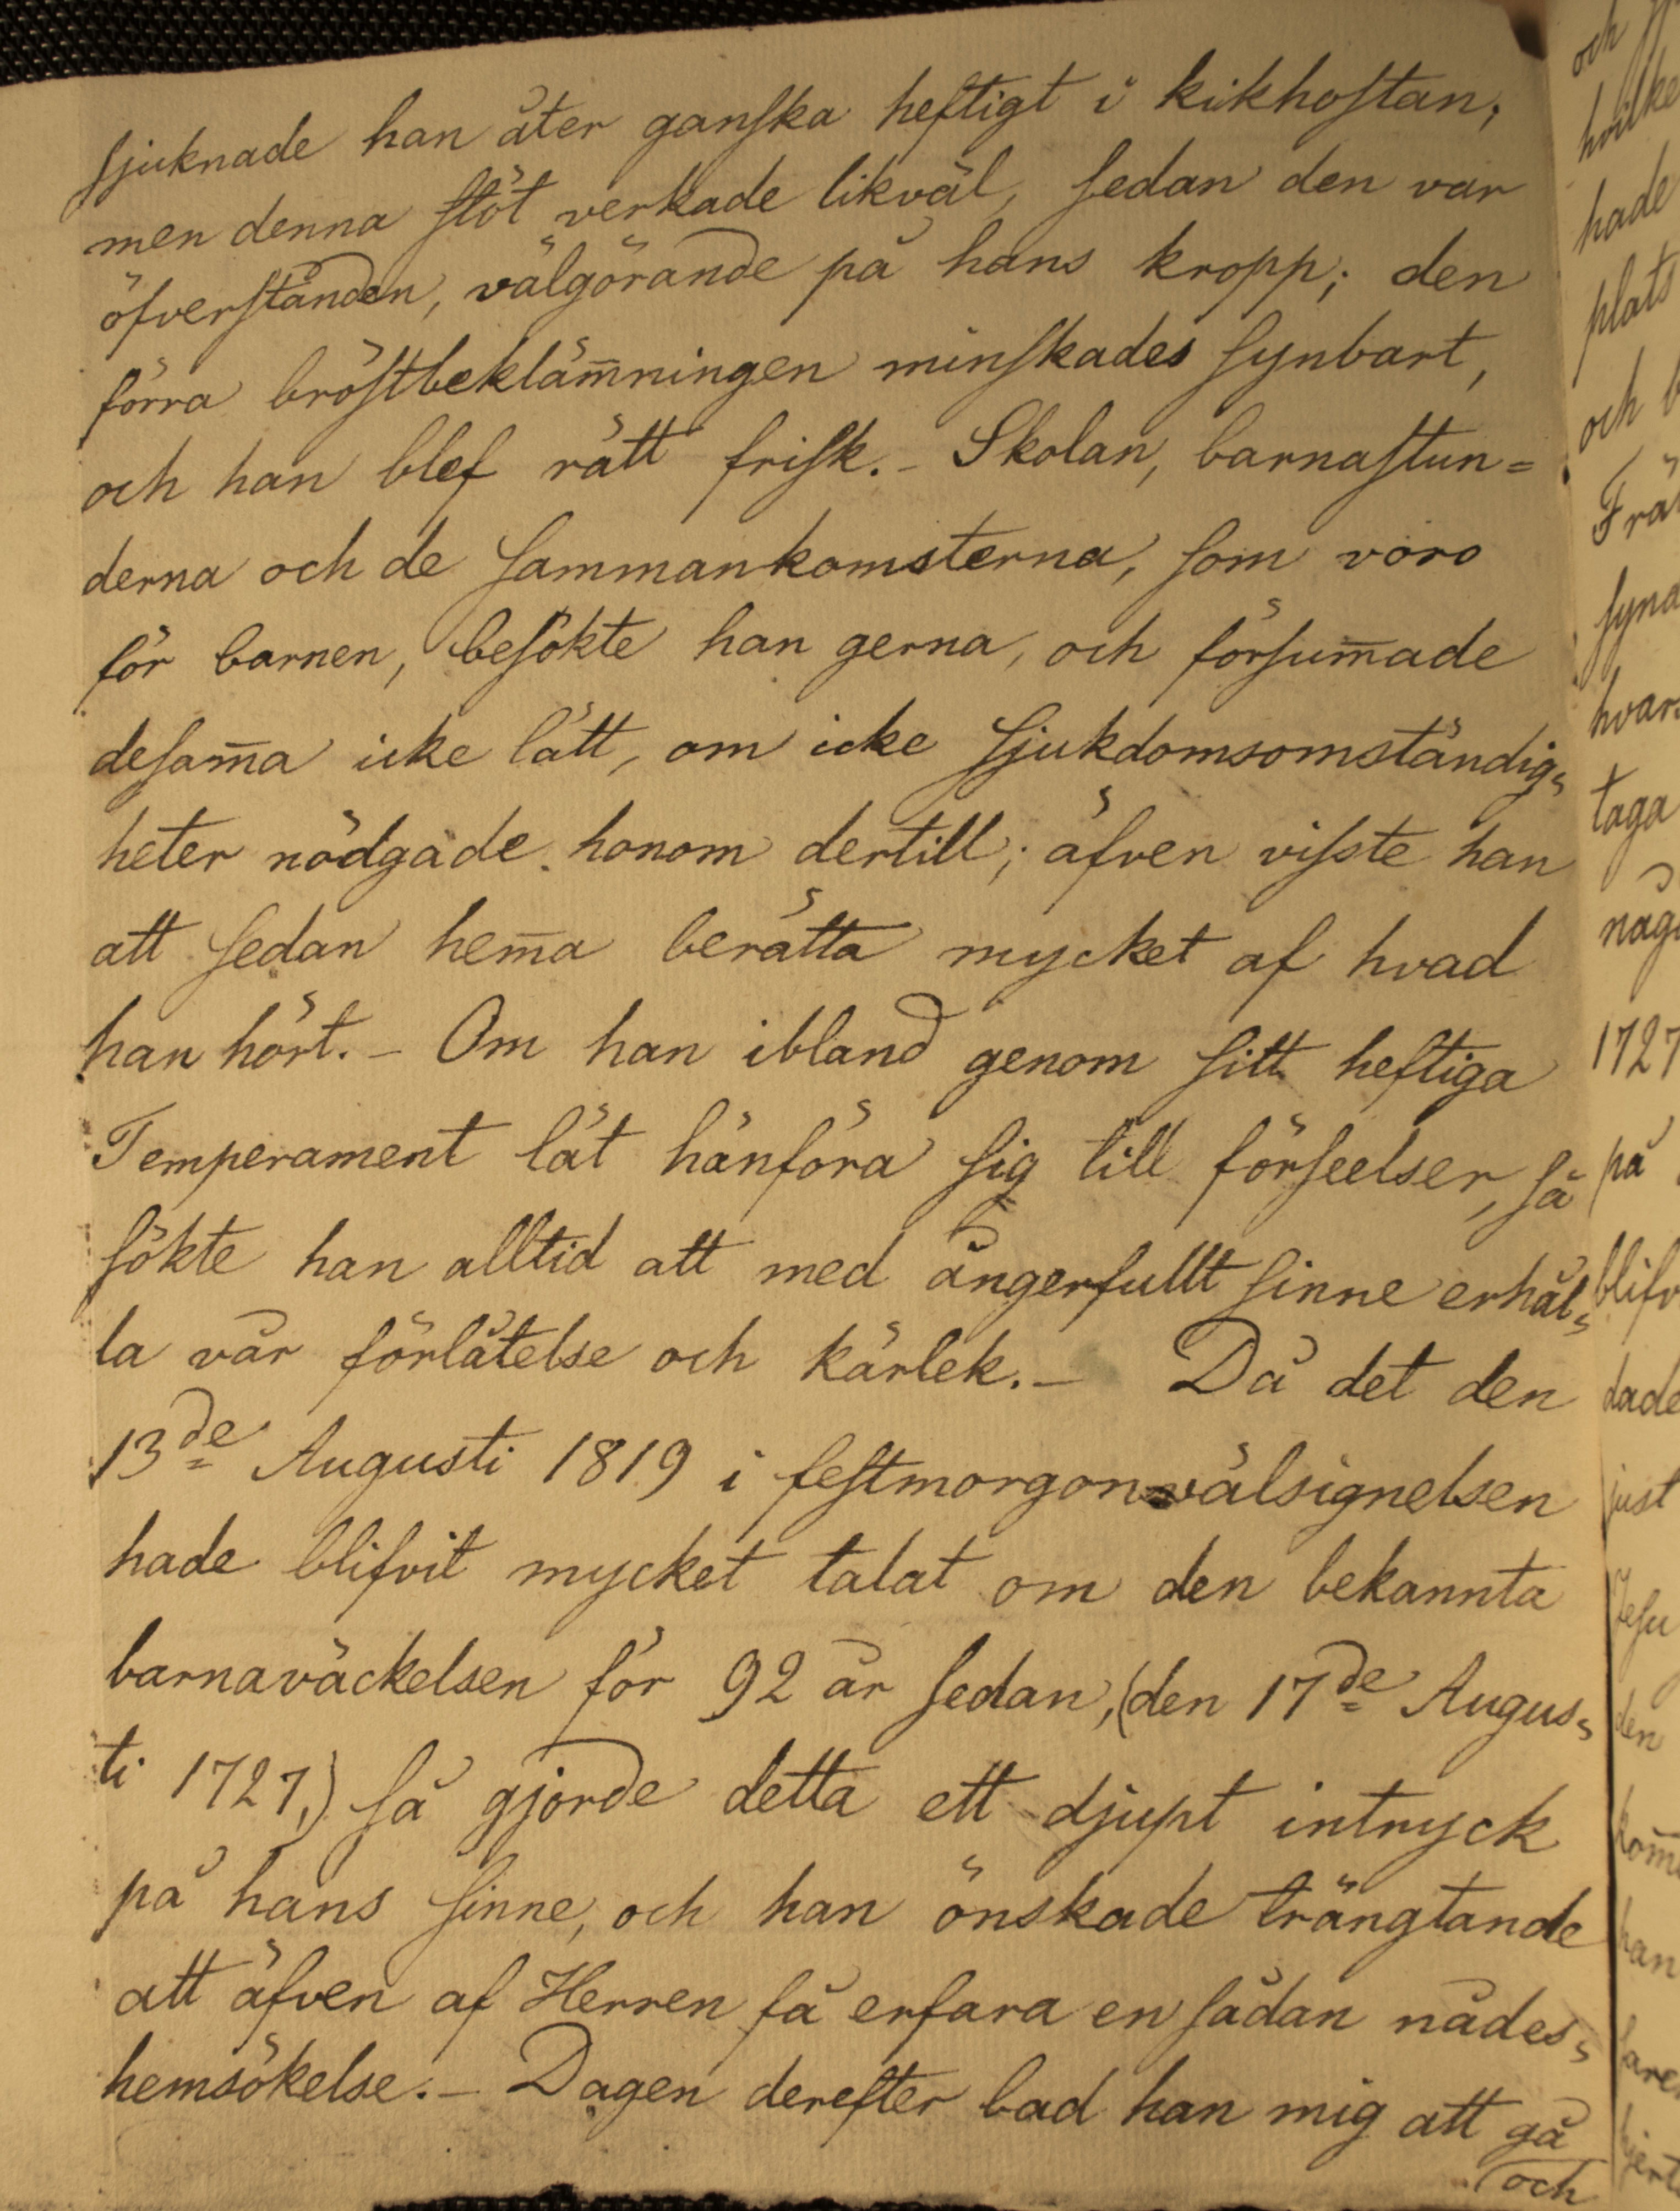 sjuknade han åter ganska heftigt i kikhostan,
men denna stöt verkade likväl, sedan den var
öfverstånden, välgörande på hans kropp; den
förra bröstbeklam̅ningen minskades synbart,
och han blef rätt frisk. – Skolan, barnastun=
derna och de sammankomsterna, som voro
för barnen, besökte han gerna, och försum̅ade
desam̅a icke lätt, om icke sjukdomsomständig=
heter nödgade honom dertill; äfven visste han
att sedan hem̅a berätta mycket af hvad
han hört. – Om han ibland genom sitt heftiga
Temperament lät hänföra sig till förseelser, så
sökte han alltid att med ångerfullt sinne erhål=
la vår förlåtelse och kärlek. – Då det den
13de Augusti 1819 i festmorgonvälsignelsen
hade blifvit mycket talat om den bekannta
barnaväckelsen för 92 år sedan, (den 17de Augus=
ti 1727,) så gjorde detta ett djupt intryck
på hans sinne, och han önskade trängtande
att äfven af Herren få erfara en sådan nådes=
hemsökelse. – Dagen derefter bad han mig att gå
och
och
hade
plats
och
taga
1727
på
just
Jesu
den